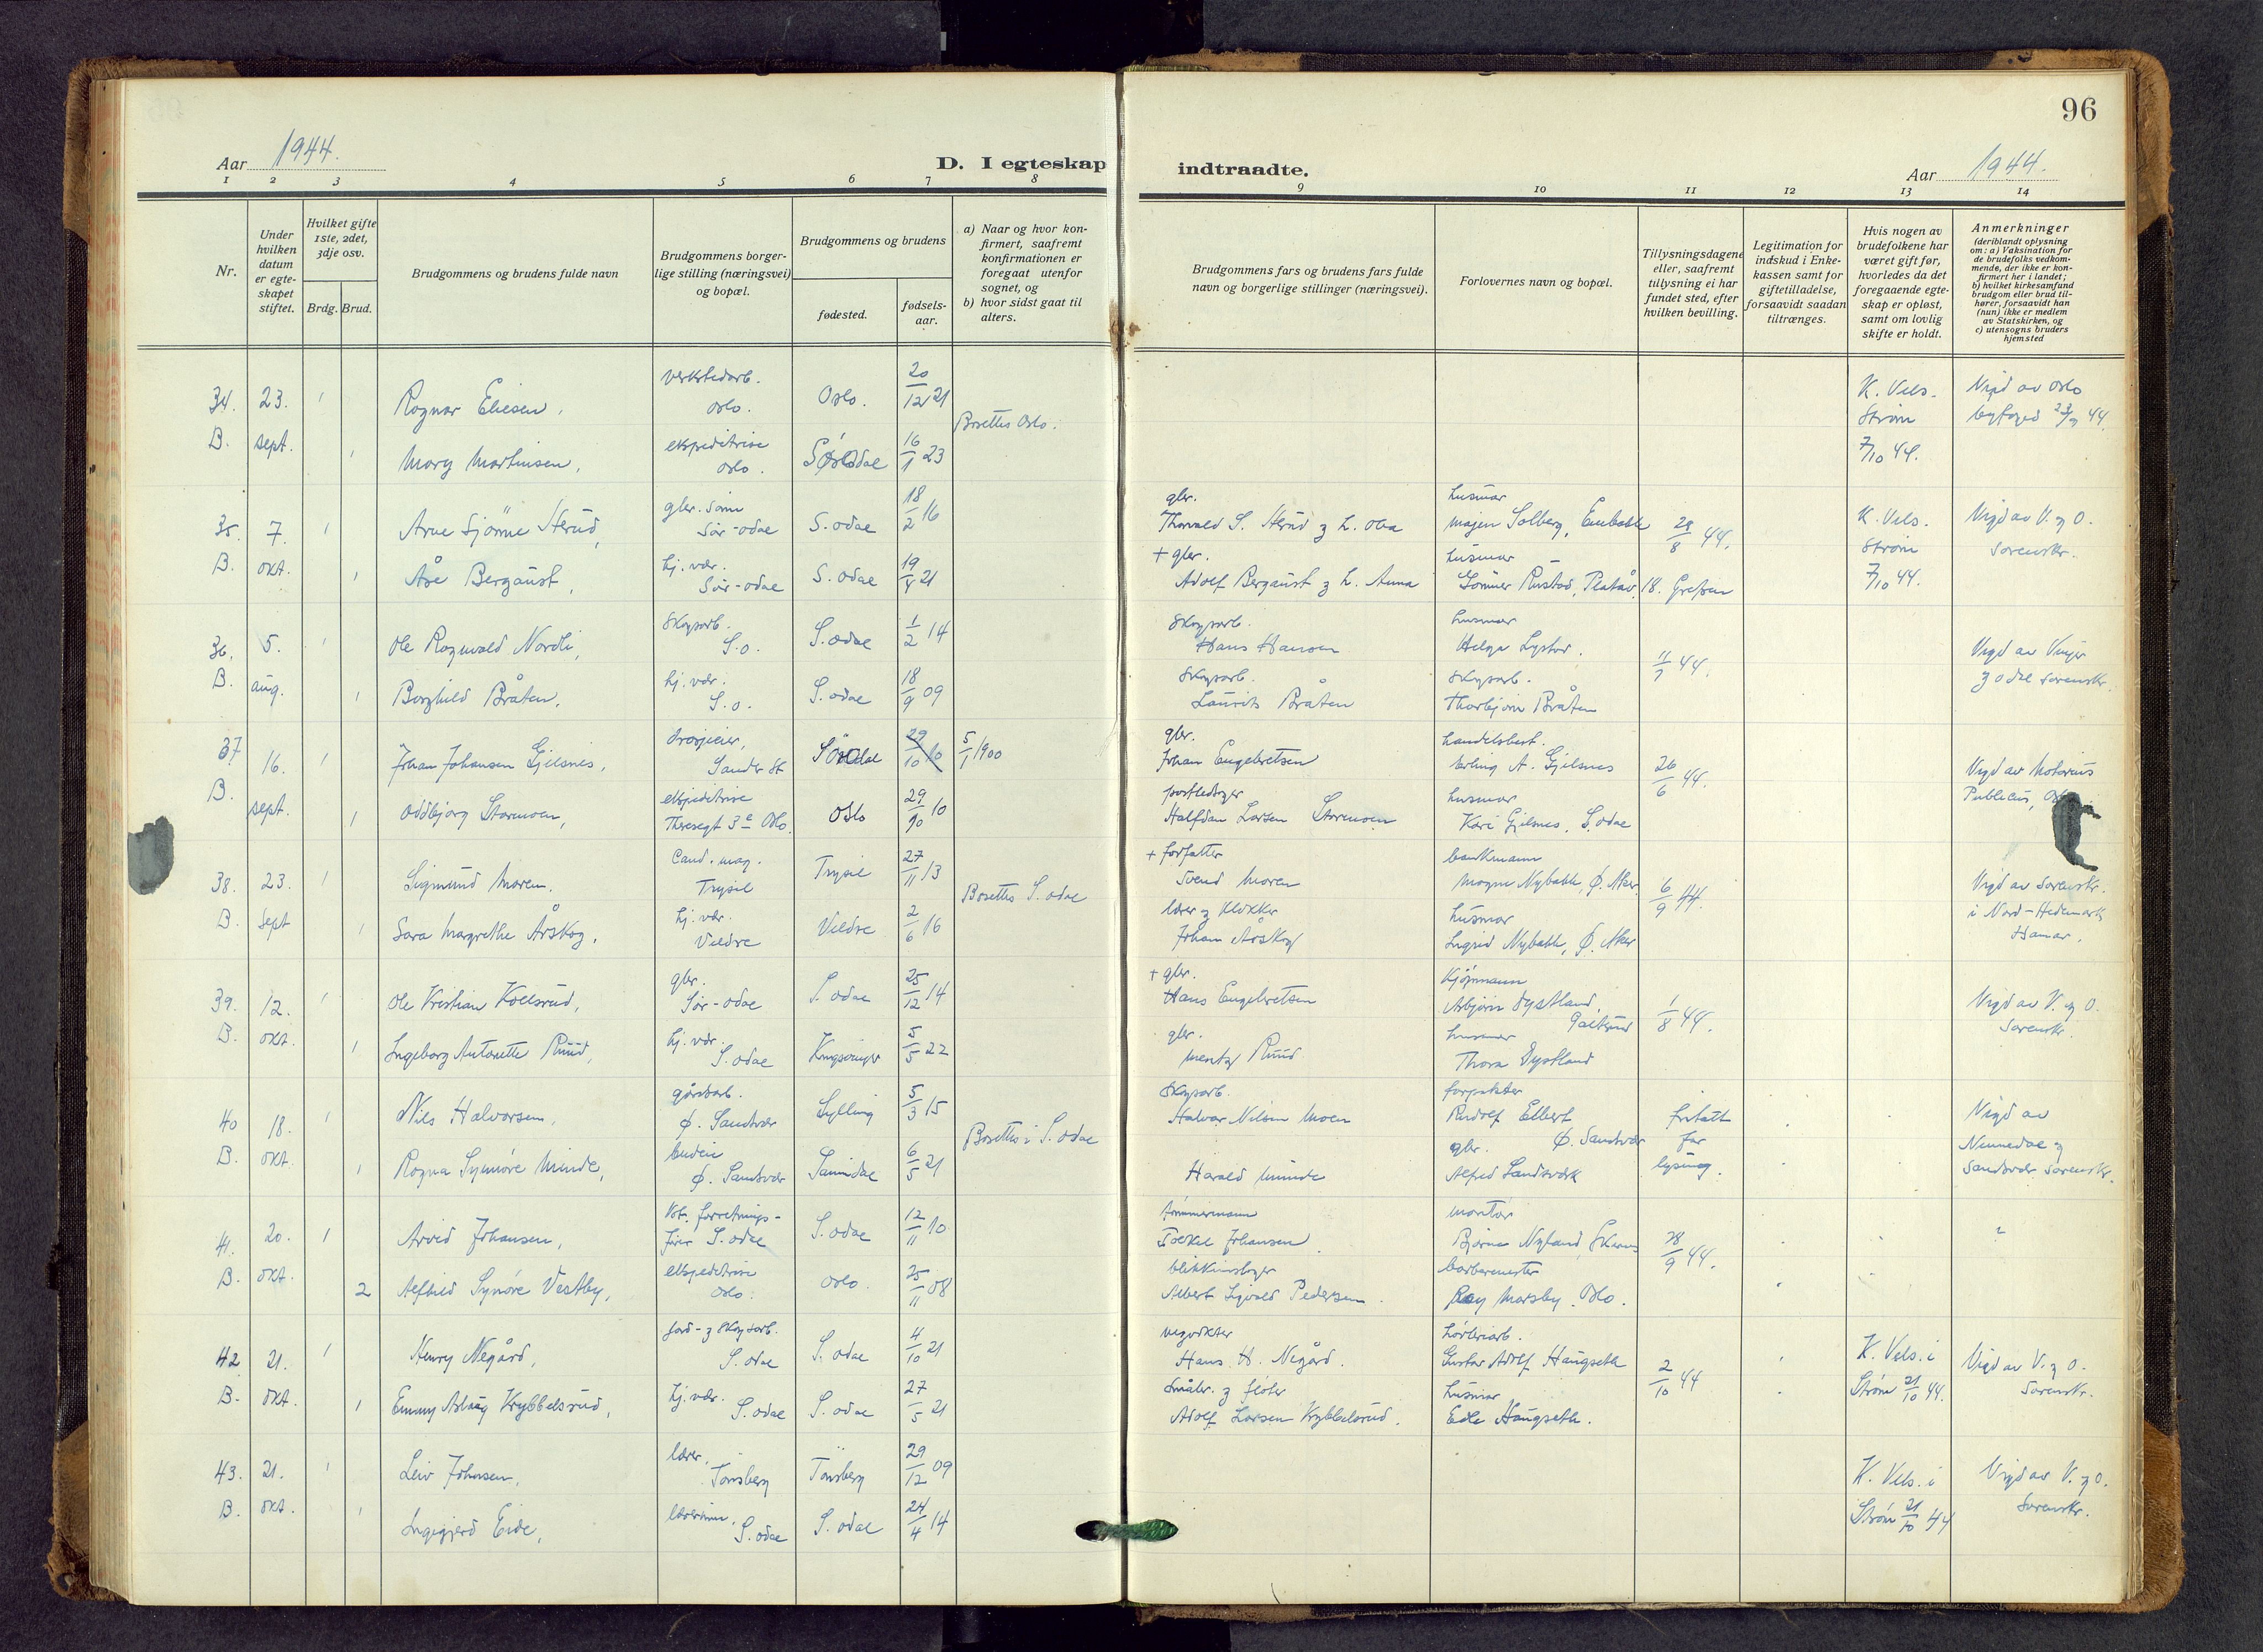 96
Aar 1944.
D. I egteskap indtraadte.
Aar 1944.
1 2 3 4 5 6 7 8 9 10 11 12 13 14
Nr.
Under hvilken datum er egte- skapet stiftet.
Hvilket gifte 1ste, 2det, 3dje osv.
Brdg. Brud.
Brudgommens og brudens fulde navn
Brudgommens borger- lige stilling (næringsvei) og bopæl.
Brudgommens og brudens
fødested.
fødsels- aar.
a) Naar og hvor kon- firmert, saafremt konfirmationen er foregaat utenfor sognet, og
b) hvor sidst gaat til alters.
Brudgommens fars og brudens fars fulde navn og borgerlige stillinger (næringsvei).
Forlovernes navn og bopæl.
Tillysningsdagene eller, saafremt tillysning ei har fundet sted, efter hvilken bevilling.
Legitimation for indskud i Enke- kassen samt for giftetilladelse, forsaavidt saadan tiltrænges.
Hvis nogen av brudefolkene har været gift før, hvorledes da det foregaaende egte- skap er opløst, samt om lovlig skifte er holdt.
Anmerkninger (deriblandt oplysning om: a) Vaksination for de brudefolks vedkom- mende, der ikke er kon- firmert her i landet; b) hvilket kirkesamfund brudgom eller brud til- hører, forsaavidt han (hun) ikke er medlem av Statskirken, og c) utensogns bruders hjemsted
34. 23. 1 Ragnar Eliesen, verkstedarb. Oslo. Oslo. 20/12 21 K. Vels. Vigd av Oslo
Bosettes Oslo. Strøm byfoged 23/9 44.
B. sept. 1 Mary Martinsen, ekspeditrise Oslo. 16/1 23 7/10 44.
35. 7. 1 Arne Sjønne Sterud, gbr. sønn Sør-Odal S. Odal 18/2 16 gbr. Thorvald S. Sterud husmor Solberg, 28/8 44. K. Vels. Vigd av V. og O.
B. okt. 1 Åse Bergaust, hj. vær. Sør-Odal S. Odal 19/4 21 + gbr. Adolf Bergaust og h. Anna husmor Rustad, Strøm 7/10 44. Sorenskr.
36. 5. 1 Ole Ragnvald Nordli, Skogsarb. S.o. S. Odal 1/2 14 Skogsarb. Hans Hansen husmor Helga 11/7 44. Vigd av Vinger
B. aug. 1 Borghild Bråten, hj. vær. S.o. S. Odal 18/9 09 Skogsarb. Laurits Bråten Skogsarb. Thorbjørn Bråten og Odal Sorenskr.
37 16. 1 Johan Johansen Gjelsnes, drosjeeier, Sander St 29/10 10 5/1 1900 gbr. Johan Engebretsen handelsbest. Erling A. Gjelsnes 26/6 44. Vigd av Notarius
B. sept. 1 Oddbjørg Stormoen, ekspeditrise Theresegt 3c Oslo. Oslo 29/10 10 Halfdan Larsen husmor Kari Gjelsnes, S. Odal Publicus,
38. 23. 1 Sigmund Moren. Cand. mag. Trysil Trysil 27/11 13 + forfatter Svend Moren Magne Nybakk, Ø. Aker 6/9 44. Vigd av Sorenskr.
Bosettes S. Odal i Nord-Hedemark
B. Sept 1 Sara Margrethe Årskog, hj. vær. Veldre Veldre 2/6 16 lærer og klokker Johan Årskog husmor Ingrid Nybakk, Ø. Aker Hamar.
39. 12. 1 Ole Kristian Kolsrud, gbr. Sør-Odal S. Odal 25/12 14 + gbr. Hans Engebretsen Kjøpmann Asbjørn Dystland, 1/8 44. Vigd av V. og O.
B. okt. 1 Ingeborg Antonette Ruud, hj. vær. S. Odal Kongsvinger 5/5 22 gbr. Ruud husmor Thora Dystland Sorenskr.
40 18. 1 Nils Halvorsen, gårdsarb. Ø. Sandsvær Lylling 5/3 15 Skogsarb. Halvor Nilsen Moen forpakter Rudolf Ellbert Ø. Sandsvær fritatt for lysning. Vigd av
Bosettes i S. Odal Numedal og
B. okt. 1 Ragna Synnøve Minde, budeie Ø. Sandsvær 6/5 21 Harald Minde gbr. Alfred Landsverk Sandsvær Sorenskr.
41. 20. 1 Arvid Johansen, forretnings- fører S. Odal S. Odal 12/11 10 tømmermann Johansen montør Bjørne Nyland, Skarnes 28/9 44.
B. okt. 2 Alfhild Synøve Vestby, ekspeditrise Oslo. Oslo. 25/11 08 blikkenslager Albert Sigvald Pedersen. barbermester Marsby. Oslo.
42 21. 1 Henry Negård, jord- og skogsarb. S. Odal S. Odal 4/10 21 vegvokter Hans H. Negård. Gustav Adolf Haugseth 2/10 44 K. Vels. i Vigd av V. og O.
B. okt. 1 Emmy Aslaug Krybbelsrud, hj. vær. S. Odal S. Odal 27/5 21 småbr. og fløter Adolf Larsen Krybbelsrud. husmor Edle Haugseth. Strøm 21/10 44. Sorenskr.
43. 21. 1 Leiv Johnsen, lærer, Tønsberg Tønsberg 29/12 09 K. Vels. i Vigd av V. og O.
B. okt. 1 Ingegjerd Eide, lærerinne, S. Odal S. Odal 24/4 14 Strøm 21/10 44 Sorenskr.